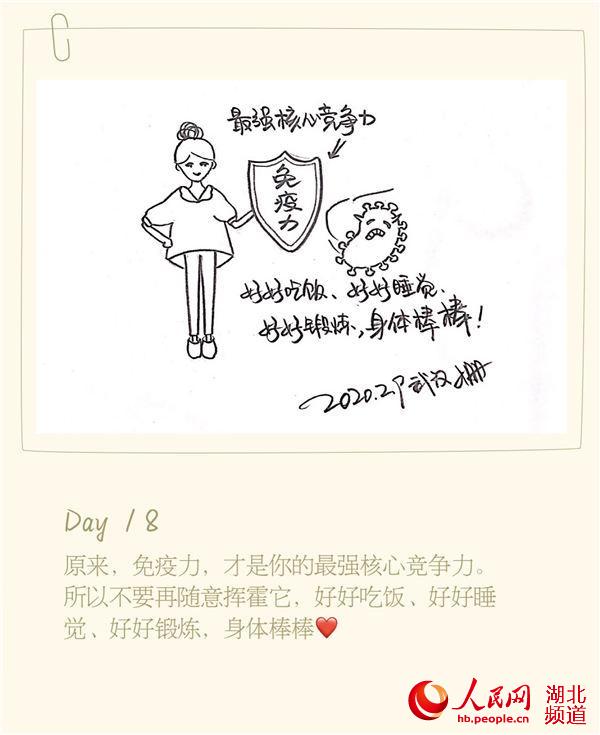 最强核心竞争力
免疫力
好好吃饭、好好睡觉、
好好锻炼,身体棒棒!
2020.2.9 武汉
Day 18
原来，免疫力，才是你的最强核心竞争力。
所以不要再随意挥霍它，好好吃饭、好好睡
觉、好好锻炼，身体棒棒❤️
人民网 湖北
hb.people.cn 频道